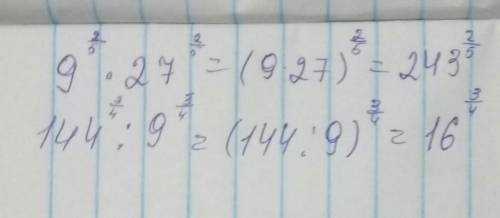 9^{2/5} · 27^{2/5} = (9·27)^{2/5} = 243^{2/5}
144^{3/4} : 9^{3/4} = (144:9)^{3/4} = 16^{3/4}